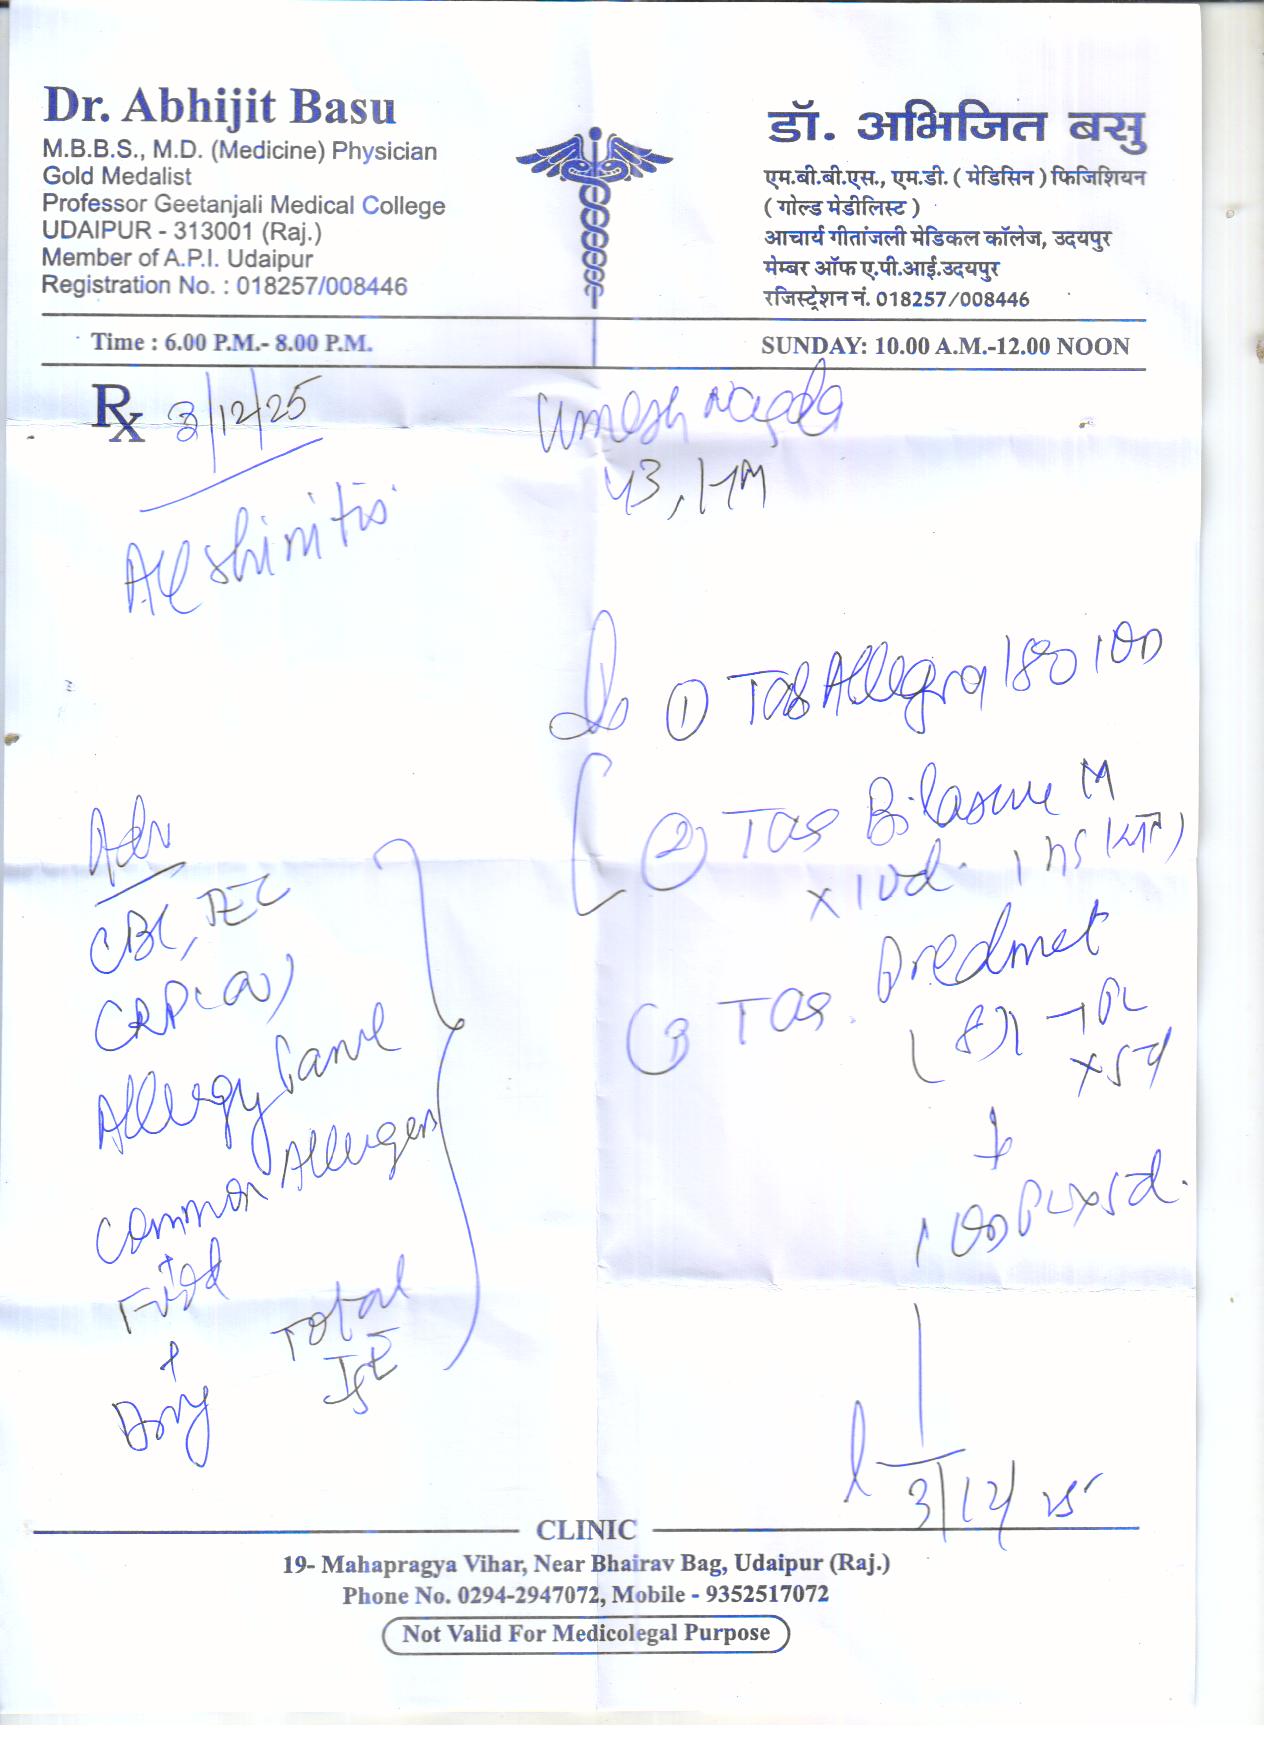 Dr. Abhijit Basu
M.B.B.S., M.D. (Medicine) Physician
Gold Medalist
Professor Geetanjali Medical College
UDAIPUR - 313001 (Raj.)
Member of A.P.I. Udaipur
Registration No. : 018257/008446
डॉ. अभिजित बसु
एम.बी.बी.एस., एम.डी. ( मेडिसिन ) फिजिशियन
( गोल्ड मेडीलिस्ट )
आचार्य गीतांजली मेडिकल कॉलेज, उदयपुर
मेम्बर ऑफ ए.पी.आई.उदयपुर
रजिस्ट्रेशन नं. 018257/008446
Time : 6.00 P.M.- 8.00 P.M.
SUNDAY: 10.00 A.M.-12.00 NOON
Rx 3/12/25
Umesh Nagda
43,
① Tab Allegra 180 1 OD
② Tab Bilasure M
x 10d. 1 hs
③ Tab. Predmet
(8)
x 5d
↓
1 OD x 5d.
Adv
CBC,
CRP
Allergy Panel
Common Allergen
+
Food
+
Total
IgE
3/12/25
CLINIC
19- Mahapragya Vihar, Near Bhairav Bag, Udaipur (Raj.)
Phone No. 0294-2947072, Mobile - 9352517072
Not Valid For Medicolegal Purpose